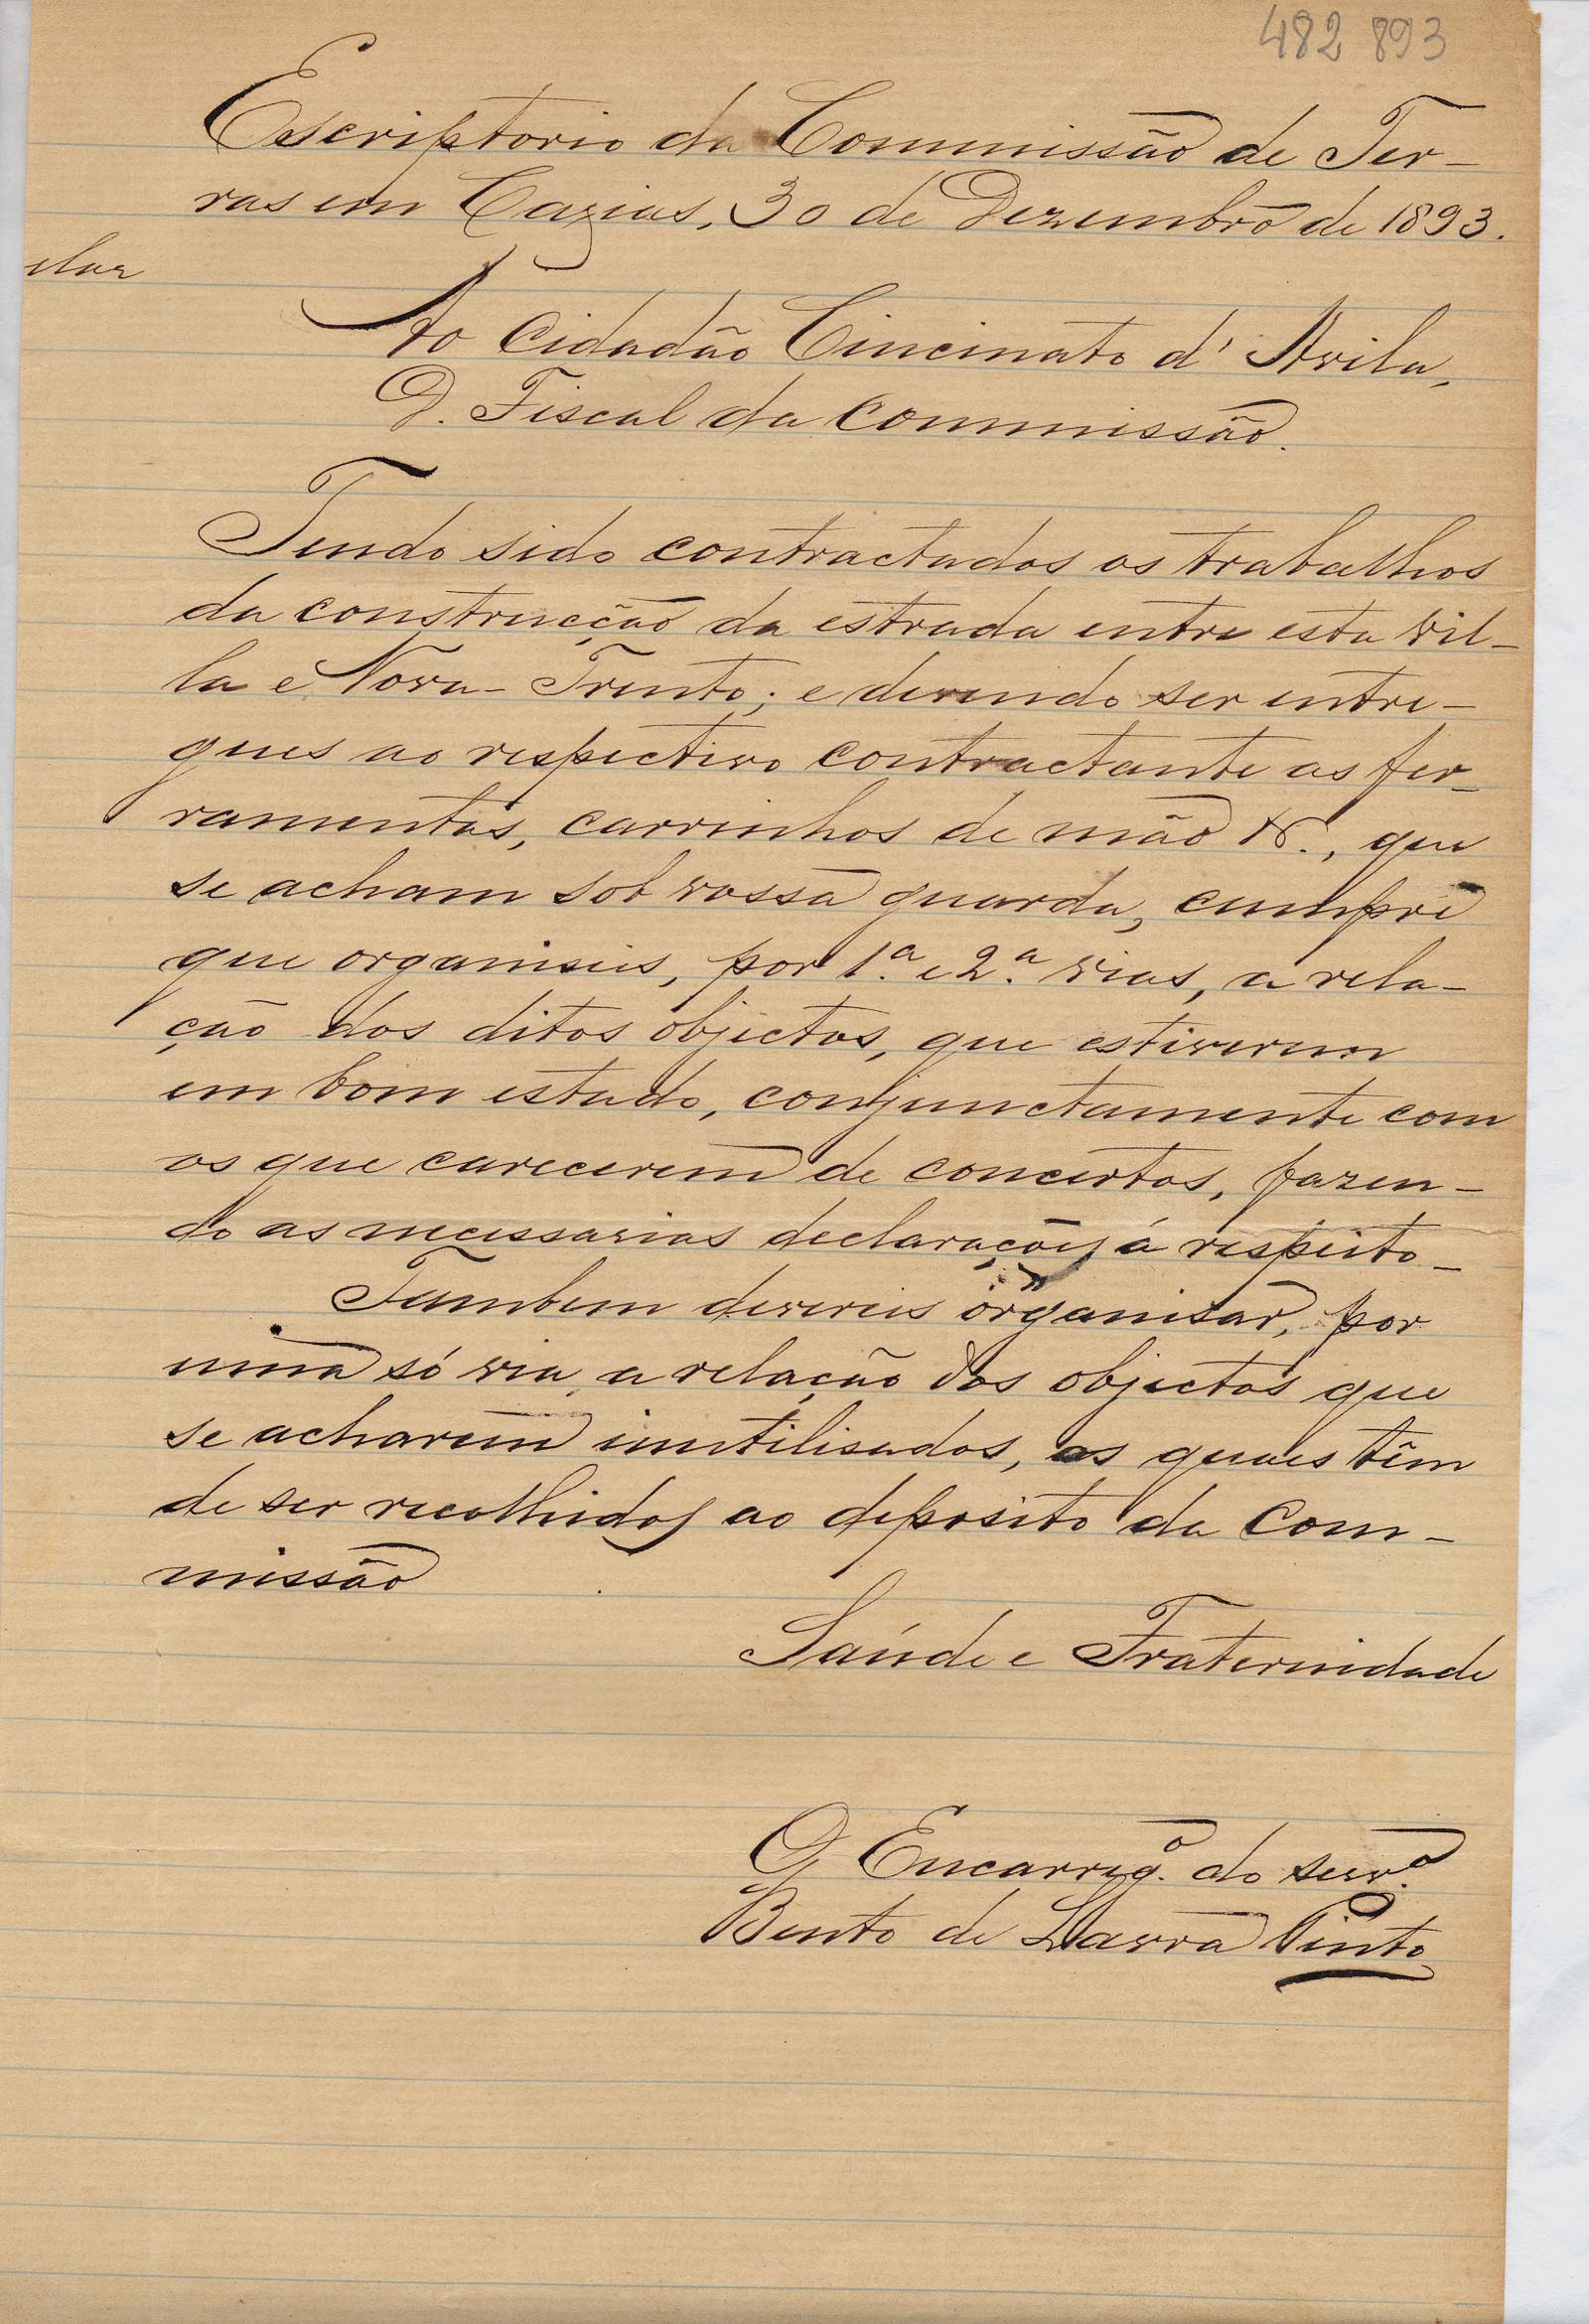 482 893
Escriptorio da Commissão de Ter-
ras em Caxias, 30 de Dezembro de 1893.
Ao Cidadão Cincinato d'Avila,
D. Fiscal da Commissão.
Tendo sido contractados os trabalhos
da construcção da estrada entre esta vil-
la e Nova-Trento; e devendo ser entre-
gues ao respectivo contractante as fer-
ramentas, carrinhos de mão &., que
se acham sob vossa guarda, cumpre
que organiseis, por 1.ª e 2.ª vias, a rela-
ção dos ditos objectos, que estiverem
em bom estado, conjunctamente com
os que carecerem de concertos, fazen-
do as necessarias declarações á respeito_
Tambem devereis organisar, por
uma só via, a relação dos objectos que
se acharem inutilisados, os quaes têm
de ser recolhidos ao deposito da Com-
missão
Saúde e Fraternidade
O Encarreg.º do serv.º
Bento de Lavra Pinto